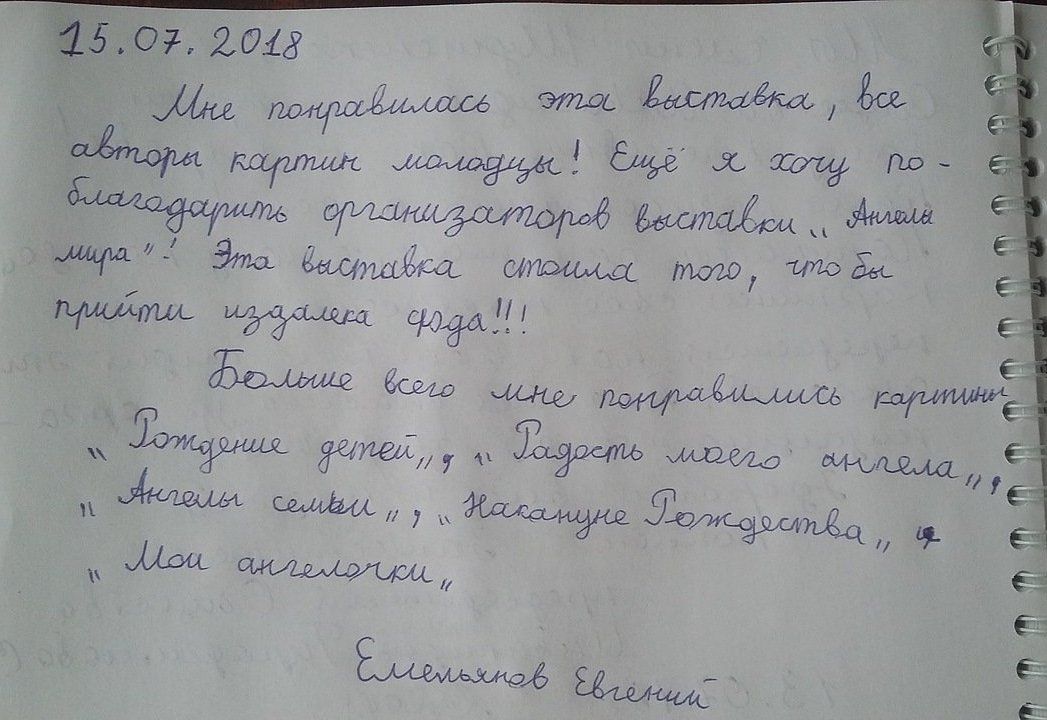 15.07.2018
Мне понравилась эта выставка, все
авторы картин молодцы! Ещё я хочу по-
благодарить организаторов выставки „Ангелы
мира"! Эта выставка стоила того, что бы
прийти издалека сюда!!!
Больше всего мне понравились картины
„Рождение детей„, „Радость моего ангела„,
„Ангелы семьи„, „Накануне Рождества„
„Мои ангелочки„
Емельянов Евгений